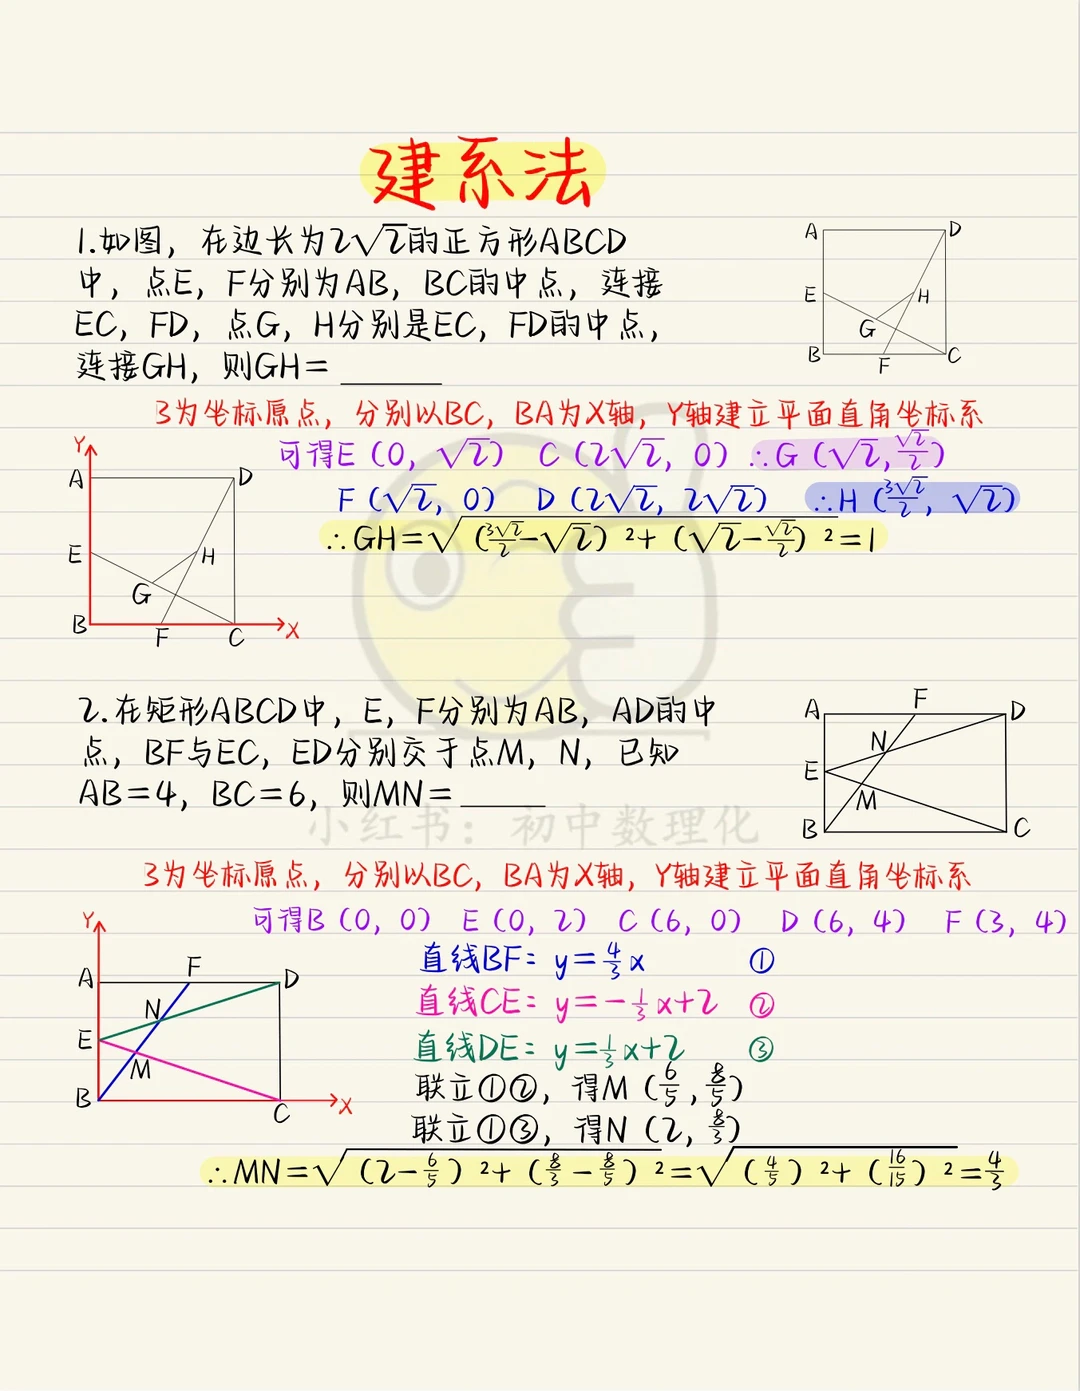 建系法
1.如图，在边长为2√2的正方形ABCD
中，点E，F分别为AB，BC的中点，连接
EC，FD，点G，H分别是EC，FD的中点，
连接GH，则GH=______
A D E H G B F C
B为坐标原点，分别以BC，BA为X轴，Y轴建立平面直角坐标系
可得E（0，√2） C（2√2，0）∴G（√2,√2/2）
F（√2，0） D（2√2，2√2） ∴H（3√2/2，√2）
∴GH=√（3√2/2-√2）²+（√2-√2/2）²=1
Y A D E H G B F C X
2.在矩形ABCD中，E，F分别为AB，AD的中
点，BF与EC，ED分别交于点M，N，已知
AB=4，BC=6，则MN=______
A F D N E M B C
小红书：初中数理化
B为坐标原点，分别以BC，BA为X轴，Y轴建立平面直角坐标系
可得B（0，0） E（0，2） C（6，0） D（6，4） F（3，4）
直线BF：y=4/3x ①
直线CE：y=-1/3x+2 ②
直线DE：y=1/3x+2 ③
联立①②，得M（6/5,8/5）
联立①③，得N（2,8/3）
∴MN=√（2-6/5）²+（8/3-8/5）²=√（4/5）²+（16/15）²=4/3
Y A F D N E M B C X